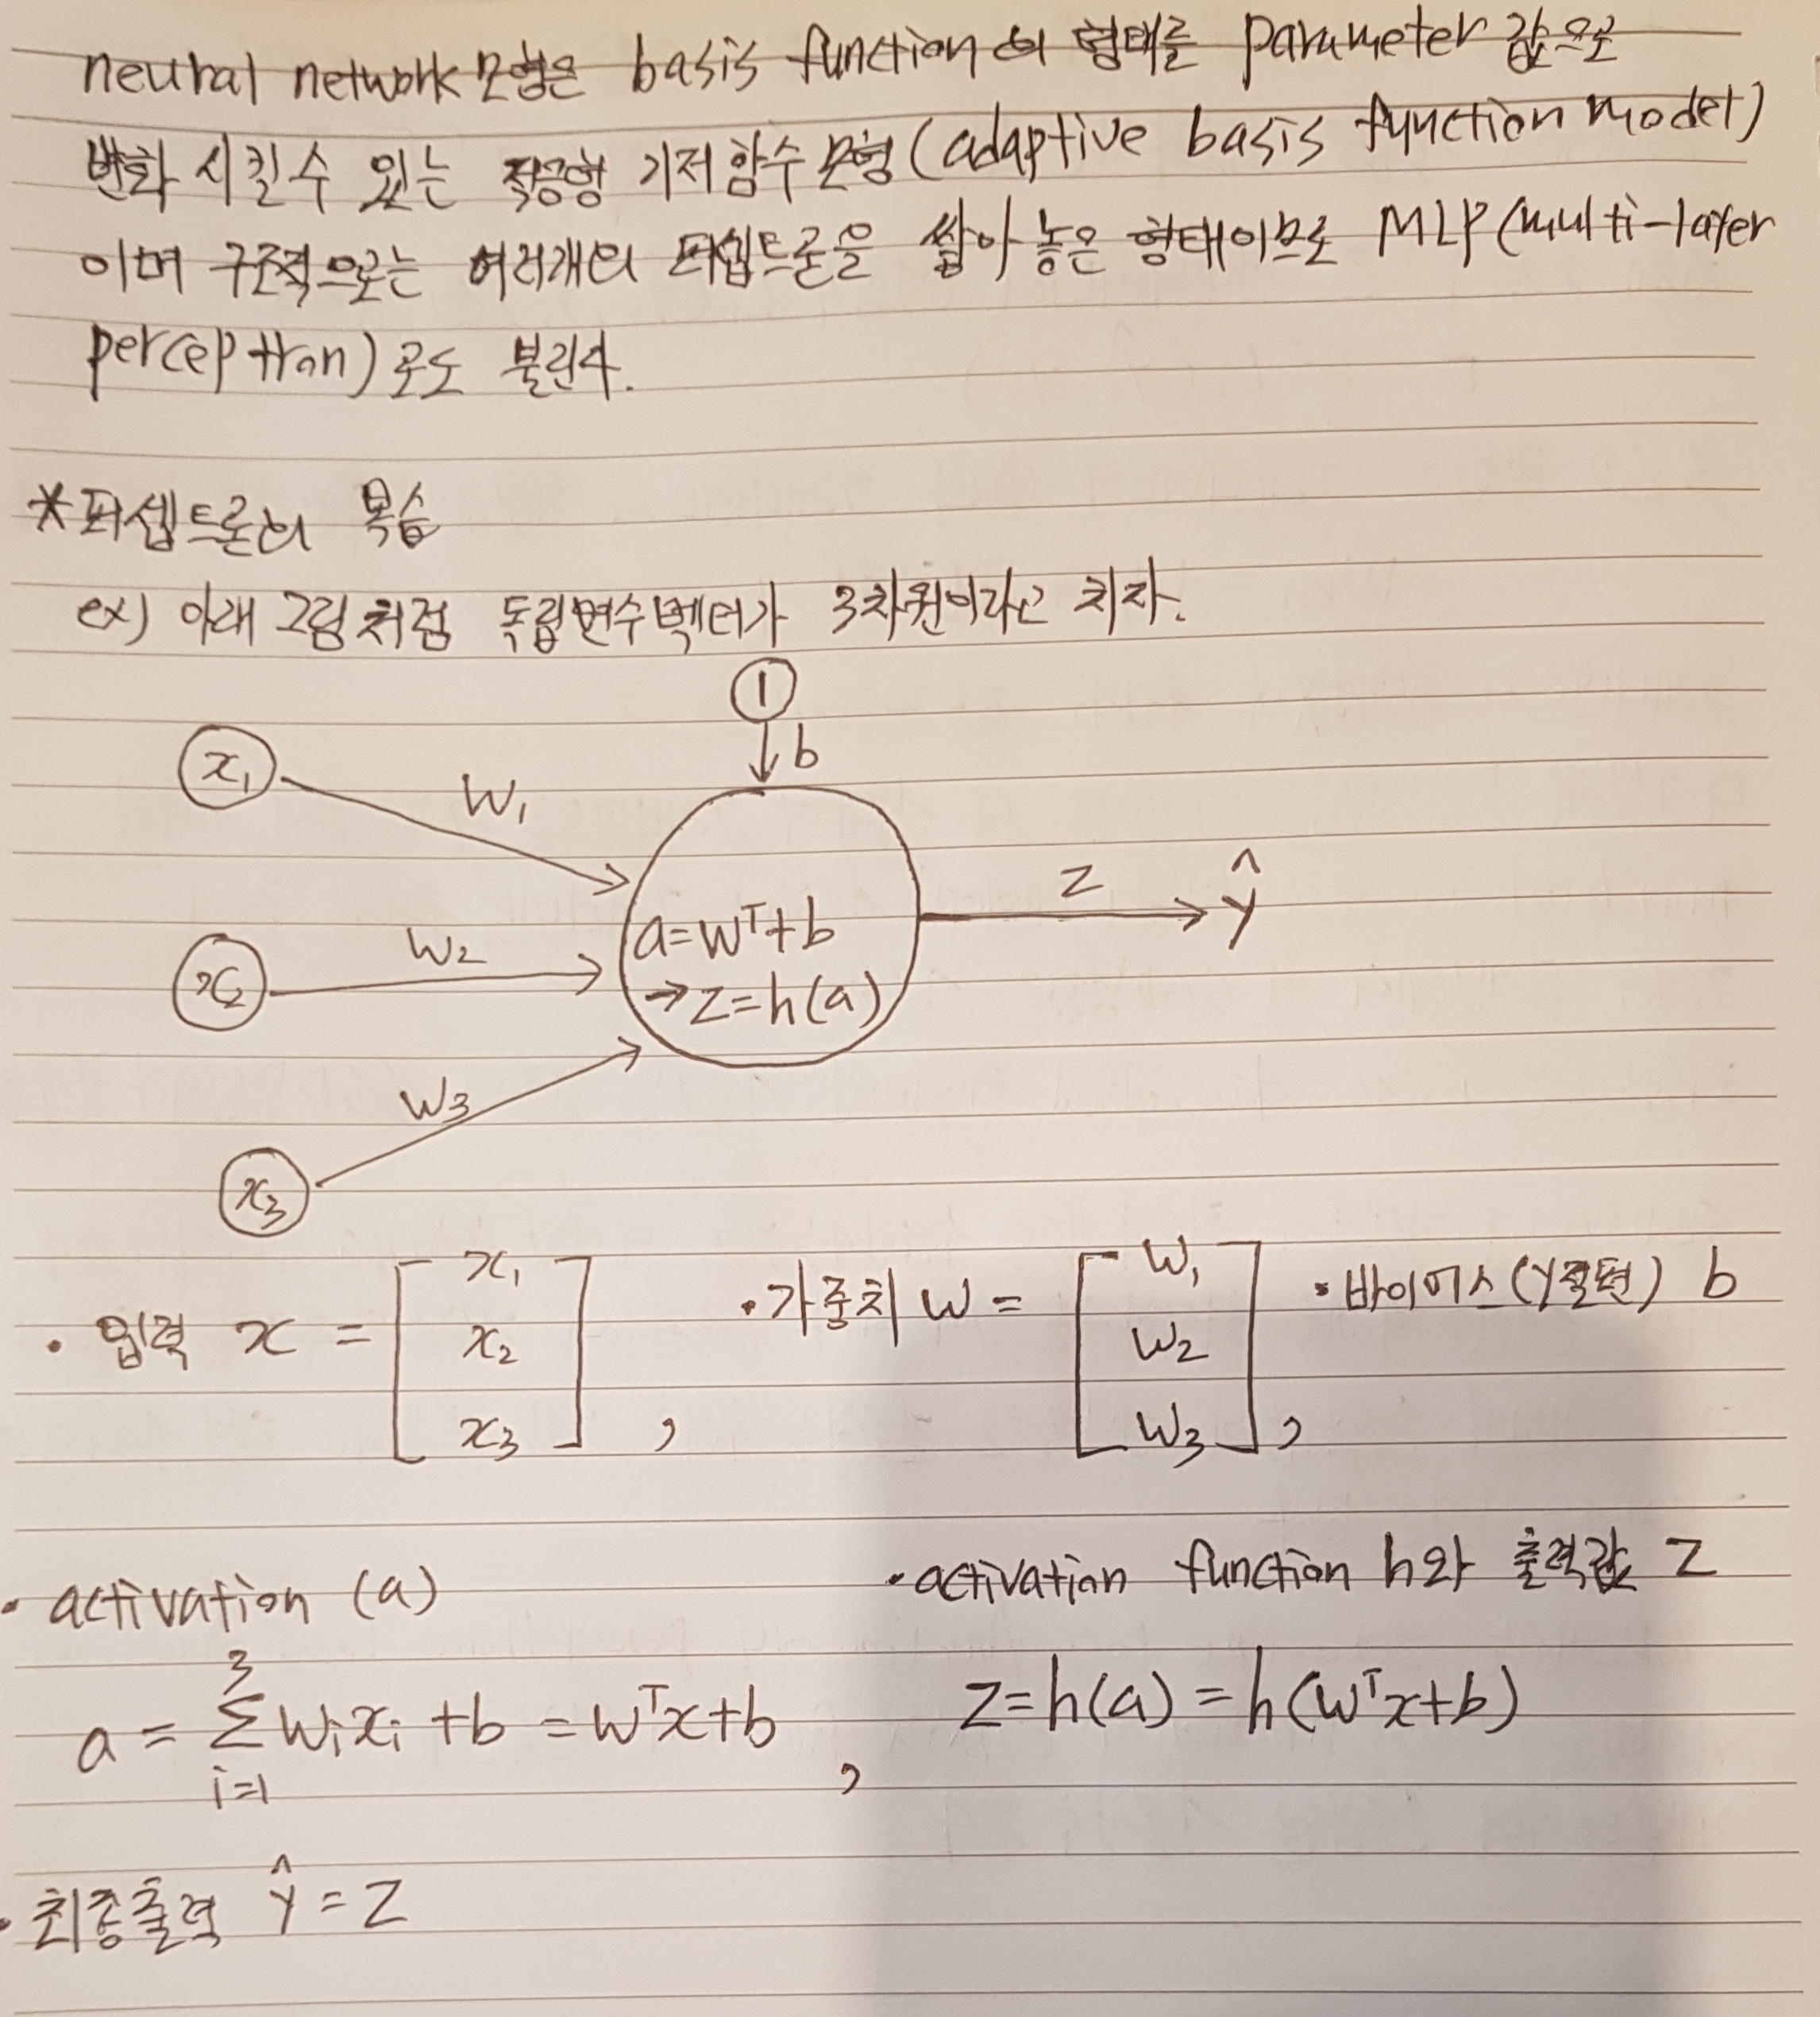 neural network 모형은 basis function의 형태를 parameter 값으로
변화 시킬 수 있는 적응형 기저 함수 모형 (adaptive basis function model)
이며 구조적으로는 여러개의 퍼셉트론을 쌓아 놓은 형태이므로 MLP (multi-layer
perceptron) 로도 불린다.
*퍼셉트론의 복습
ex) 아래 그림처럼 독립변수벡터가 3차원이라고 치자.
1
b
x₁
w₁
z
ŷ
a=wᵀ+b
w₂
x₂
→z=h(a)
w₃
x₃
· 입력 x = [x₁ x₂ x₃] , · 가중치 w = [w₁ w₂ w₃] , · 바이어스(y절편) b
· activation (a)
· activation function h와 출력값 z
a = ∑ᵢ₌₁³ wᵢxᵢ + b = wᵀx+b ,
z=h(a) = h(wᵀx+b)
· 최종출력 ŷ = z